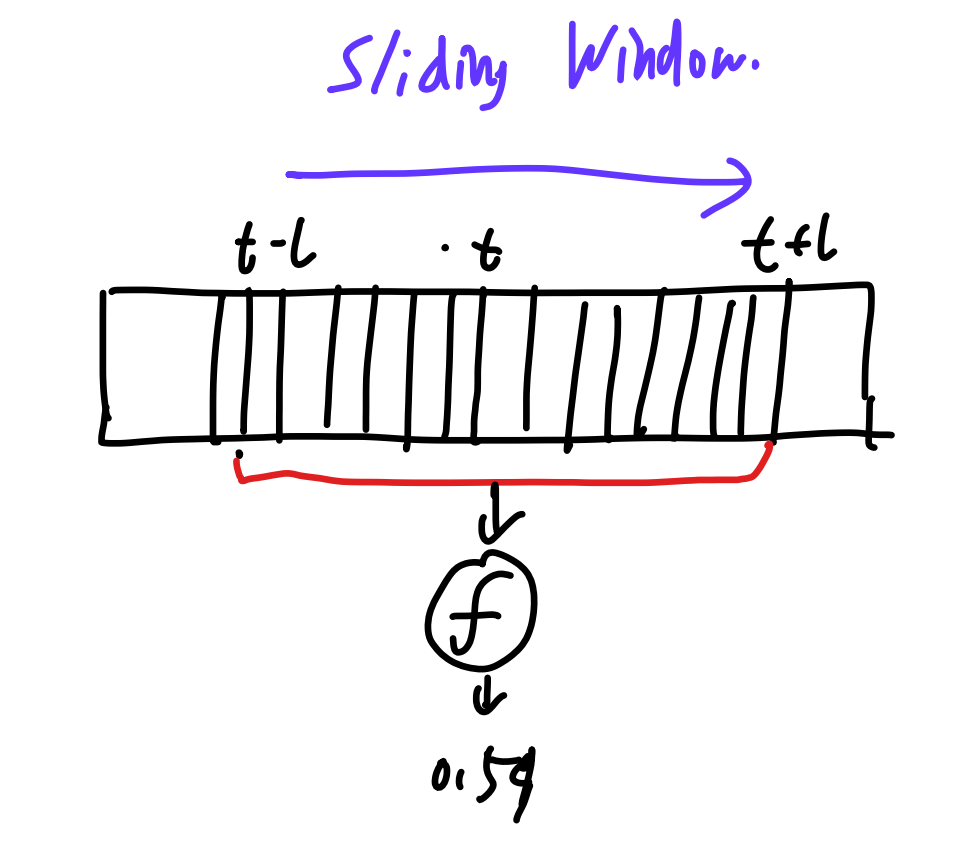 Sliding Window.
t-l . t t+l
f
0.59